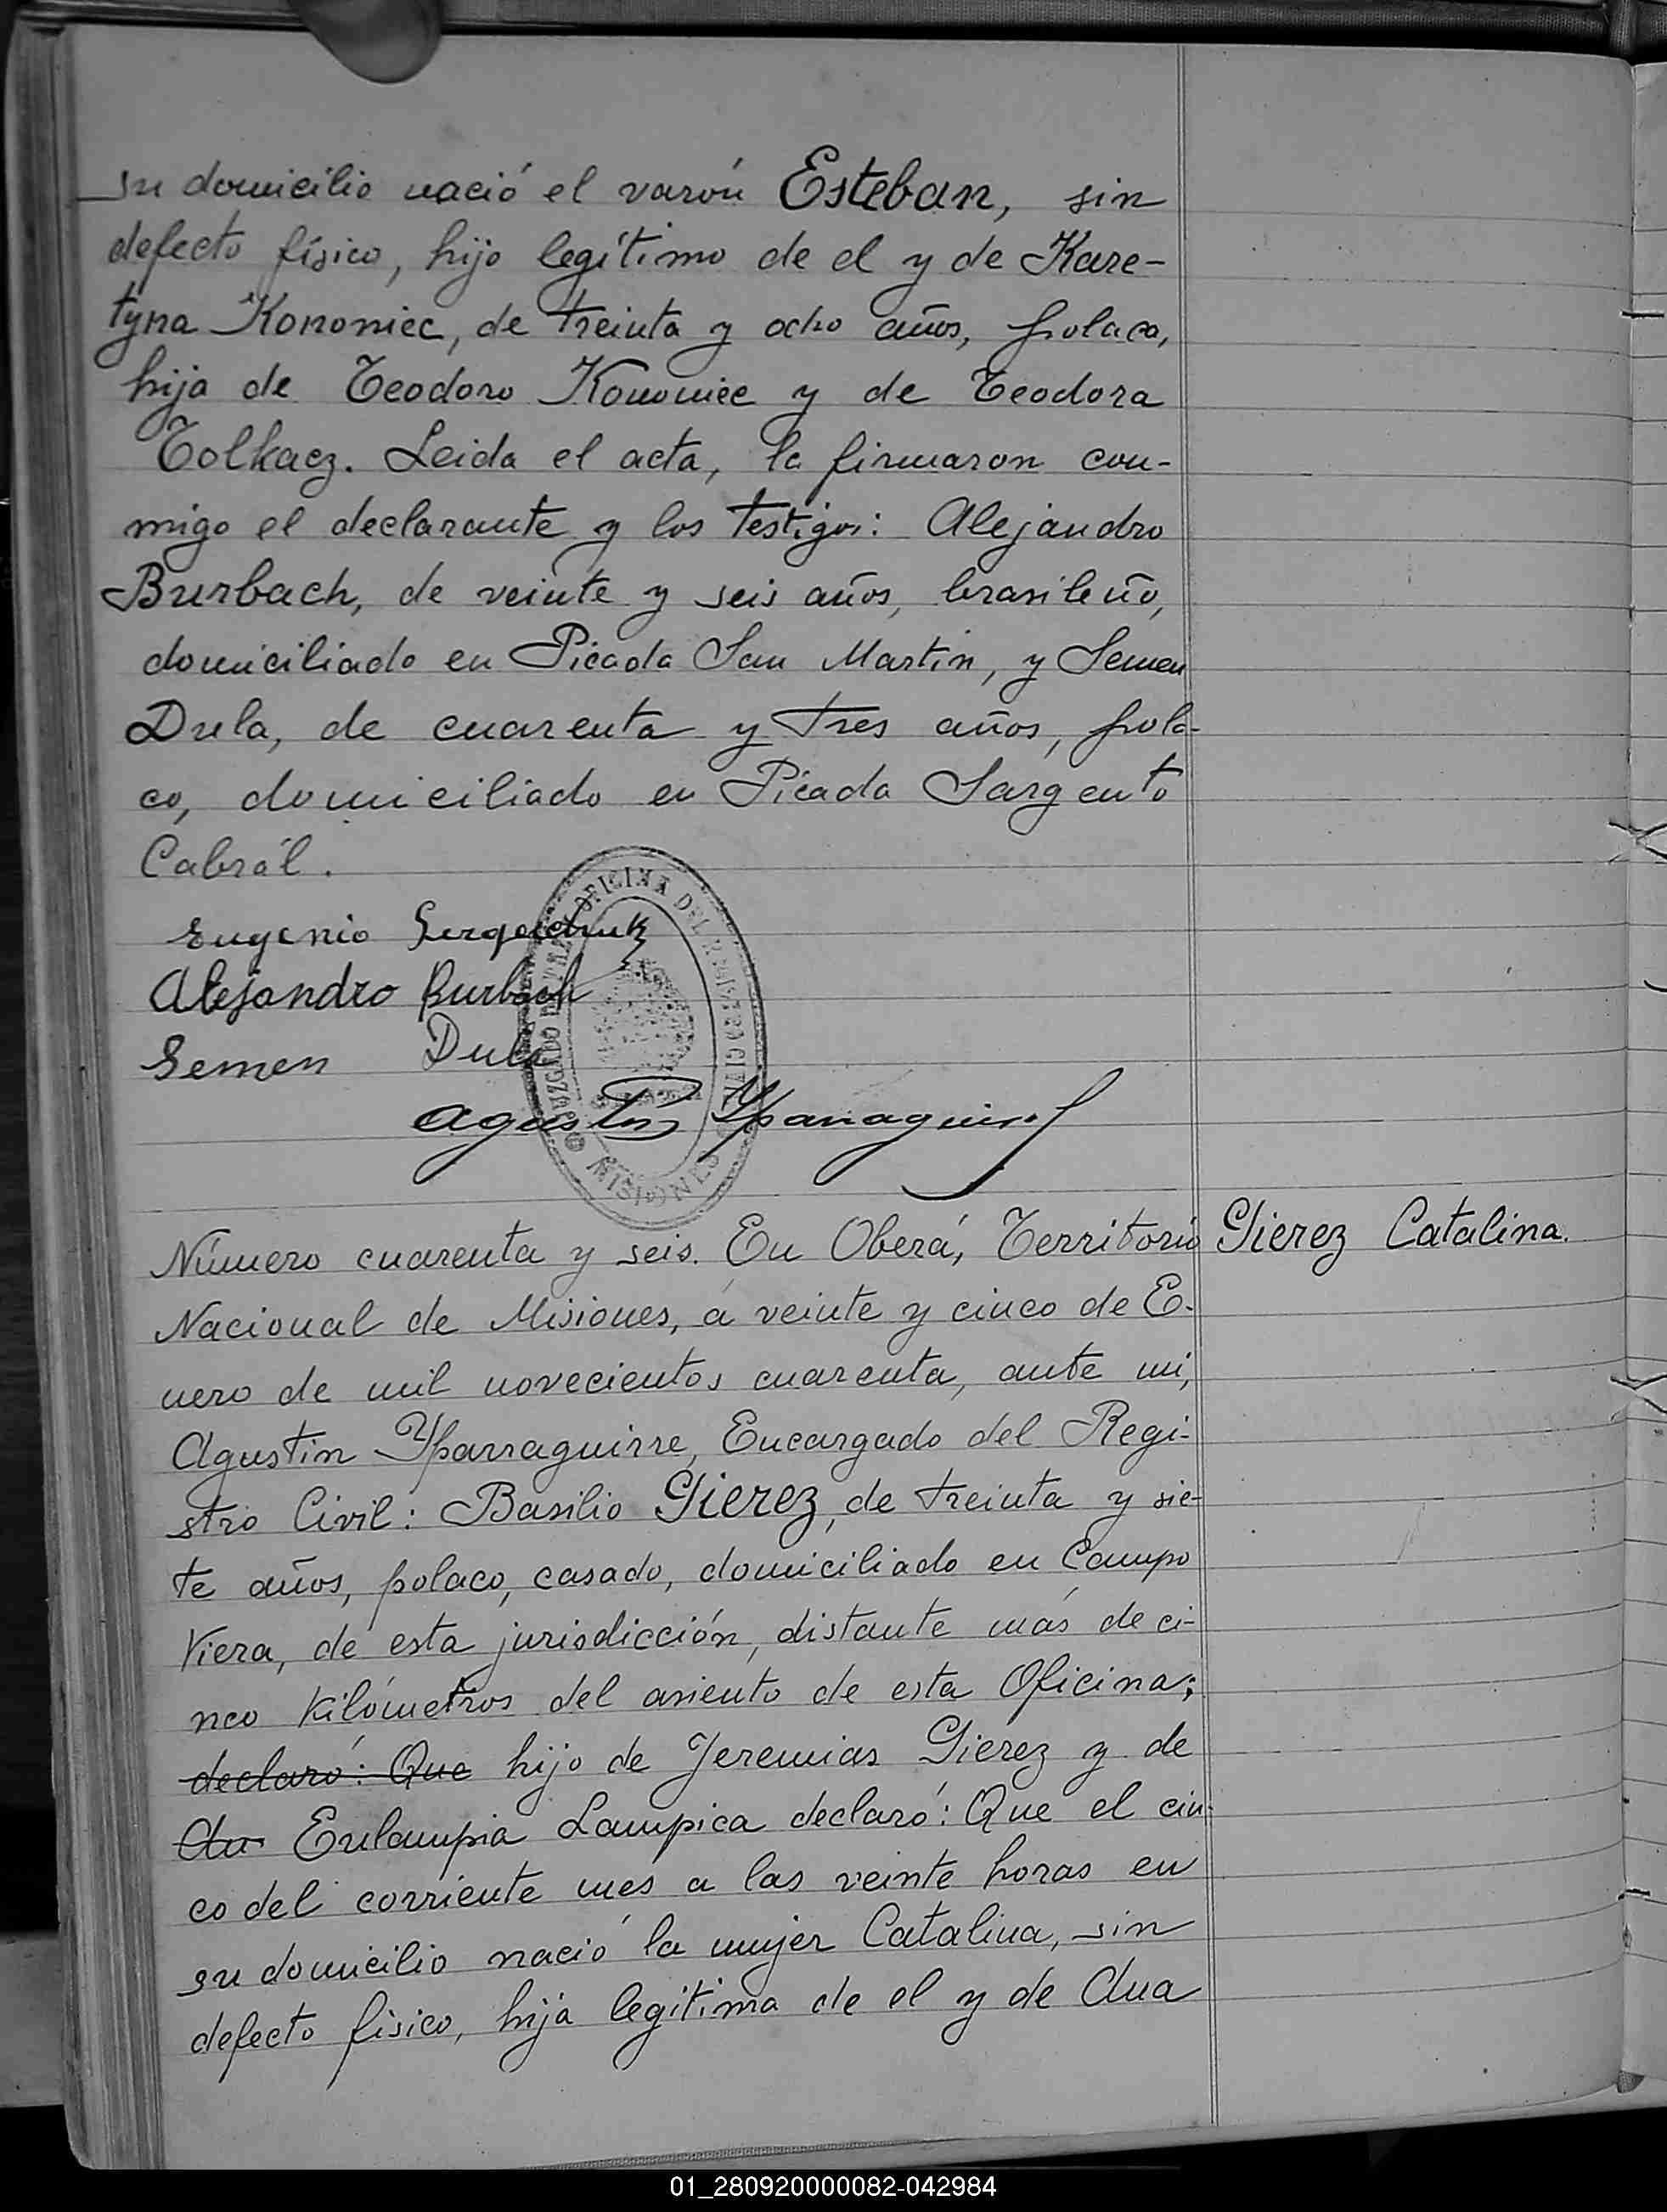 su domicilio nació el varón Esteban, sin
defecto físico, hijo legítimo de el y de Kare-
tyna Kononiec, de treinta y ocho años, polaca,
hija de Teodoro Kononiec y de Teodora
Tolkacz. Leida el acta, la firmaron con-
migo el declarante y los testigos: Alejandro
Burbach, de veinte y seis años, brasileño,
domiciliado en Picada San Martin, y Semen
Dula, de cuarenta y tres años, pola-
co, domiciliado en Picada Sargento
Cabrál.
Eugenio
Alejandro Burbach
Semen Dula
OFICINA DEL REGISTRO CIVIL
JUZGADO DE PAZ
MISIONES
Agustin Yparraguirre
Número cuarenta y seis. En Oberá, Territorio
Gierez Catalina.
Nacional de Misiones, á veinte y cinco de E-
nero de mil novecientos cuarenta, ante mi,
Agustin Yparraguirre, Encargado del Regi-
stro Civil: Basilio Gierez, de treinta y sie-
te años, polaco, casado, domiciliado en Campo
Viera, de esta jurisdicción, distante más de ci-
nco kilómetros del asiento de esta Oficina;
declaró: Que hijo de Jeremias Gierez y de
Eulampia Lampica declaró: Que el cin-
co del corriente mes a las veinte horas en
su domicilio nació la mujer Catalina, sin
defecto fisico, hija legitima de el y de Ana
01_280920000082-042984